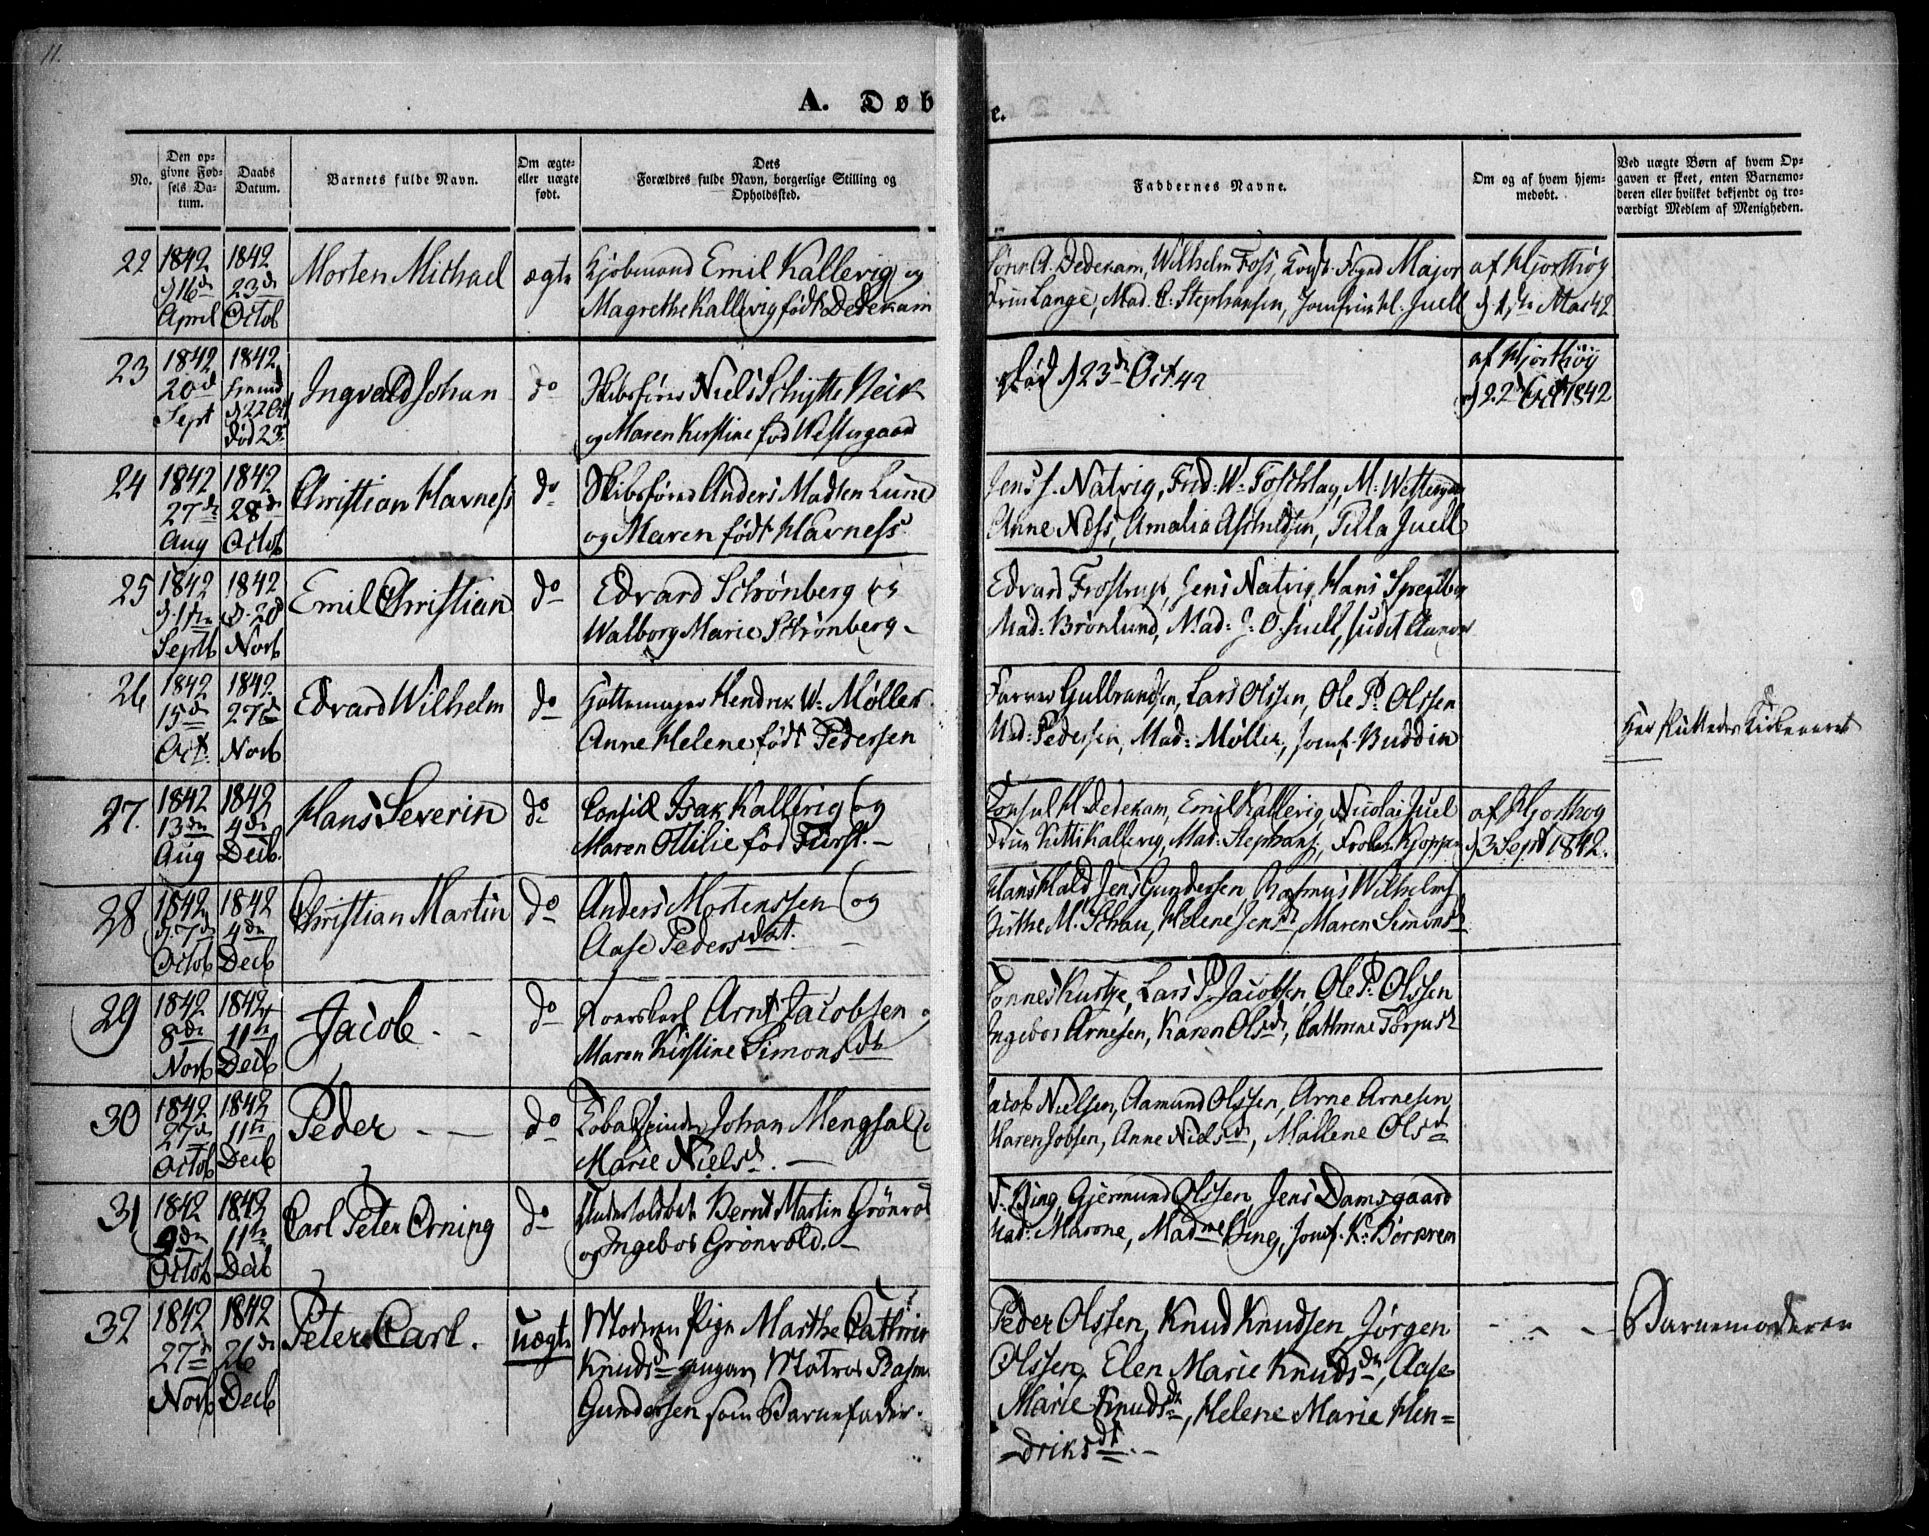 11.
A. Døb
e.
No.
Den op-
givne Fød-
sels Da-
tum.
Daabs
Datum.
Barnets fulde Navn.
Om ægte-
eller uægte
født.
Dets
Forældres fulde Navn, borgerlige Stilling og
Opholdssted.
Faddernes Navne.
Om og af hvem hjem-
medøbt.
Ved uægte Børn af hvem Op-
gaven er skeet, enten Barnemo-
deren eller hvilket bekjendt og tro-
værdigt Medlem af Menigheden.
22
1842
d 16de
April
1842
23de
Octob
Morten Michael
ægte
Kjøbmand Emil Kallevig og
Magrethe Kallevig født Dedekam
A. Dedekam, Wilhelm Foss, Major
Lange, Mad. Stephansen, Juell
af Hjorthøy
Mai 42
23
1842
20de
Sept
1842
d 22 Oct
død 23.
Ingvald Johan
do
Skibsfører Niels Schytte Reik
og Maren Kirstine fød Westergaard
død d 23de Oct 42
af Hjorthöy
d 22de Oct 1842
24
1842
27de
Aug
1842
28de
Octob
Christian Havness
do
Skibsfører Anders Madsen Lund
og Maren født Havness
Jens J. Natvig, M. Westergaa
Anne Ness, Amalia, Juell
25
1842
Septb
1842
d. 20
Novb
Emil Christian
do
Edvard Schrønberg og
Walborg Marie Schrønberg
Edvard Frostrup, Jens Natvig, Hans
Mad: Brönlund, Mad: J. O. Juell,
26
1842
15de
Oct.
1842.
27de
Novb
Edvard Wilhelm
do
Hattemager Hendrik W. Møller.
Anne Helene født Pedersen
Gulbrandsen, Lars Olssen, Ole Pd. Olssen
Mad: Pedersen, Mad: Møller, Jomf. Buddin
Her
27.
1842
13de
Aug
1842
4de
Decb.
Hans Severin
do
Consul Isak Kallevig og
Maren Ottilie fød Fürst.
Consul H Dedekam, Emil Kallevig, Nicolai Juel
Kallevig, Mad: Stephans:,
af Hjorthøy
d 3 Sept 1842.
28
1842
d. 7de
Octob
1842
4de
Decb
Christian Martin
do
Anders Mortenssen og
Aase Pedersdat.
Hans Hald Jens Gundersen, Rasmus Wilhelms
Birthe M. Schau, Helene Jensd, Maren Simonsd
29
1842
8de
Novb
1842
11te
Decb
Jacob
do
Arnt Jacobsen
Maren Kirstine Simonsdt
Tönnes, Lars P. Jacobsen, Ole P. Olssen
Ingebor Arnesen, Karen Olsd, Cathrine Torjusd
30
1842
27de
Octob
1842
11te
Decb
Peder
do
Tobakspinder Johan Mengsal
Marie Nielsd.
Jacob Nielsen, Aamund Olssen, Arne Arnesen
Maren Jobsen, Anne Nielsd, Mallene Olsd
31
1842
9de
Octob
1842
11te
Decb
Carl Peter Orning
do
Bernt Martin Grönvold
og Ingebor Grönvold.
Bing, Gjermund Olssen, Jens Damsgaard
Mad: Marone, Madme Bing, Jomf. K. Börresen
32
1842
27de
Novb
1842
26de
Decb
Peter Carl.
uægte
Moderen Pige Marthe Cathrine
Knudsd angav Matros Rasm
Gundersen som Barnefader.
Peder Olssen, Knud Knudsen, Jørgen
Olssen, Elen Marie Knudsd, Aase
Marie Knudsd, Helene Marie Hen=
driksdt.
Barnemoderen